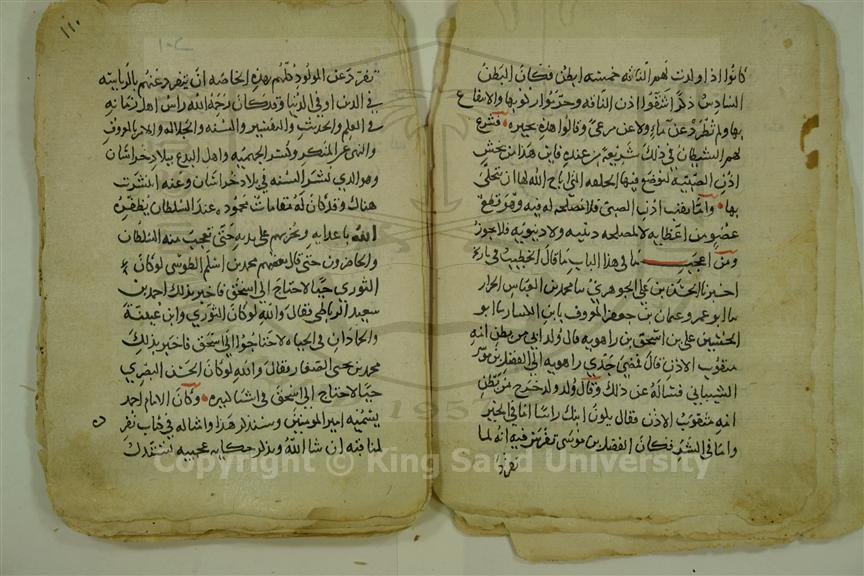 كانوا اذا ولدت لهم الناقه خمسه ابطن فكان البطن
السادس ذكرا شقوا اذن الناقه وحرموا ركوبها والانتفاع
بها ولم تطرد عن ماء ولا عن مرعى وقالوا هذه بحيره فشرع
لهم الشيطان في ذلك شريعة من عنده فاين هذا من بخش
اذن الصبيه ليوضع فيها الحلقه التي اباح الله لها ان تتحلى
بها واما ثقب اذن الصبي فلا مصلحه له فيه وهو قطع
عضو من اعضايه لا لمصلحه دينيه ولا دنيويه فلا يجوز
ومن اعجب ما في هذا الباب ما قال الخطيب في تاريخه
اخبرنا الحسن بن علي الجوهري ثنا محمد بن العباس الخزاز
ثنا ابو عمرو عثمان بن جعفر المعروف بابن اللبان ثنا ابو
الحسين علي بن اسحق بن راهويه قال ولد ابي من بطن امه
مثقوب الاذن قال فمضى جدي راهويه الى الفضل بن موسى
الشيباني فسأله عن ذلك وقال ولد لي ولد خرج من بطن
امه مثقوب الاذن فقال يكون ابنك راسا اما في الخير
واما في الشر فكان الفضل بن موسى تفرس فيه انه لما
تفرد
١١٠
تفرد عن المولود كلهم بهذه الخاصه ان ينفرد عنهم بالرياسه
في الدين او في الدنيا وقد كان رحمه الله راس اهل زمانه
في العلم والحديث والتفسير والسنه والجلاله والامر بالمعروف
والنهي عن المنكر وكسر الجهميه واهل البدع ببلاد خراسان
وهو الذي نشر السنه في بلاد خراسان وعنه انتشرت
هناك وقد كان له مقامات محموده عند السلطان يظفره
الله باعدايه ويخزيهم على يديه حتى تعجب منه السلطان
والحاضرون حتى قال بعضهم محمد بن اسلم الطوسي لو كان
الثوري حيا لاحتاج الى اسحق فاخبر بذلك احمد بن
سعيد الرباطي فقال والله لو كان الثوري وابن عيينة
والحمادان في الحياه لاحتاجوا الى اسحق فاخبر بذلك
محمد بن يحيى الصفار فقال والله لو كان الحسن البصري
حيا لاحتاج الى اسحق في اشيا كثيره وكان الامام احمد
يسميه امير المومنين وسنذكر هذا وامثاله في كتاب نفرده
لمناقبه ان شا الله ونذكر حكايه عجيبه يستدل
Copyright © King Saud University
1957